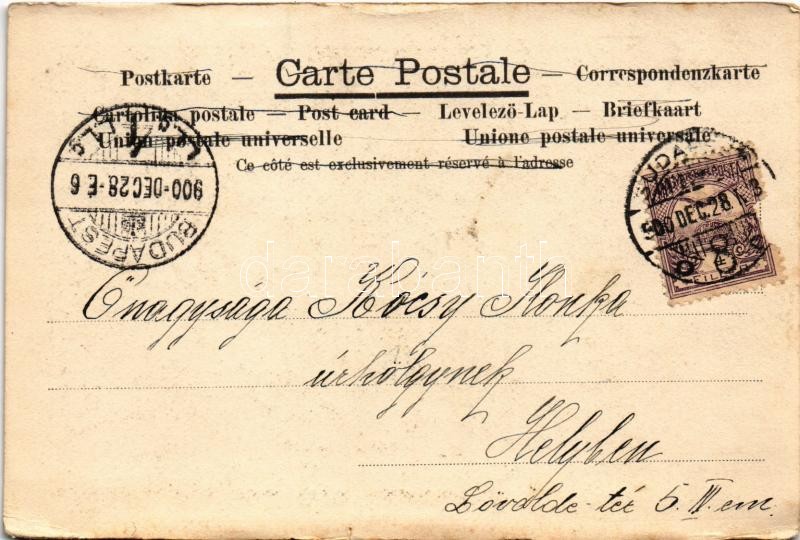 Postkarte — Carte Postale — Correspondenzkarte
Cartolina postale — Post card — Levelező-Lap — Briefkaart
Union postale universelle Unione postale universale
Ce côté est exclusivement réservé à l'adresse
BUDAPEST
900 DEC 28 E 6
BUDAPEST
900 DEC. 28
Őnagysága Kócsy Ilonka
úrhölgynek
Helyben
Lövölde-tér 5. III. em.
darabanth